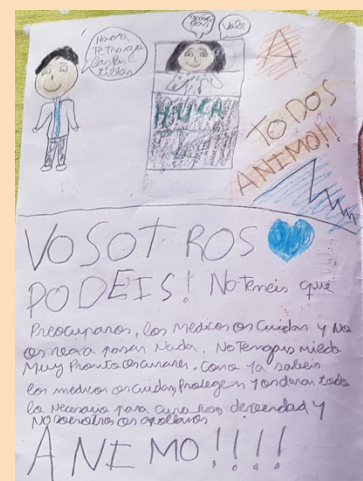 Hola
Te traigo
las pas-
tillas
Gracias
Vale
A
TODOS
ANIMO!!
VOSOTROS
PODEIS! No teneis que
Preocuparos, los medicos os Cuidan, y No
os va a pasar Nada. No Tengais miedo
Muy Pronto os curareis, como ya sabeis
los medicos os cuidan, Protegen y os daran todo
lo Necesario para curaros, descansad y
Nosotros os apollamos
ANIMO!!!!